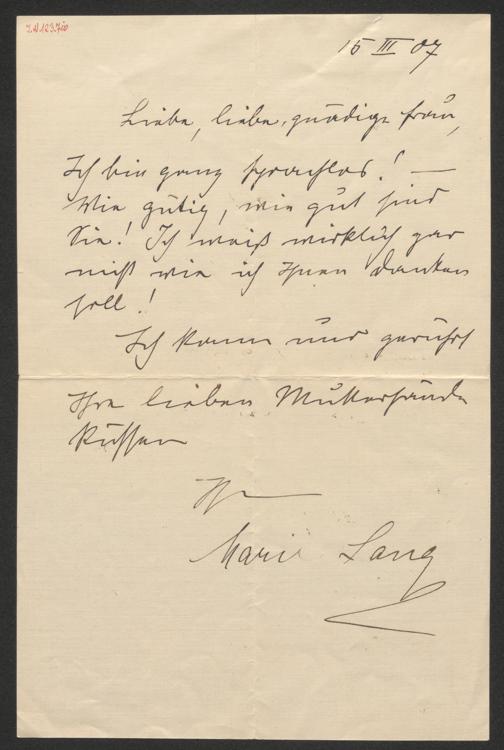 15 III 07
Liebe, liebe, gnädige Frau,
Ich bin ganz sprachlos! —
Wie gütig, wie gut sind
Sie! Ich weiß wirklich gar
nicht wie ich Ihnen danken
soll!
Ich kann nur gerührt
Ihre lieben Mutterhände
küssen
Ihre
Marie Lang